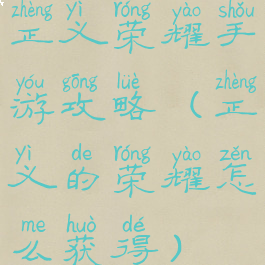 zhèng yì róng yào shǒu
正义荣耀手
yóu gōng lüè zhèng
游攻略（正
yì de róng yào zěn
义的荣耀怎
me huò dé
么获得）